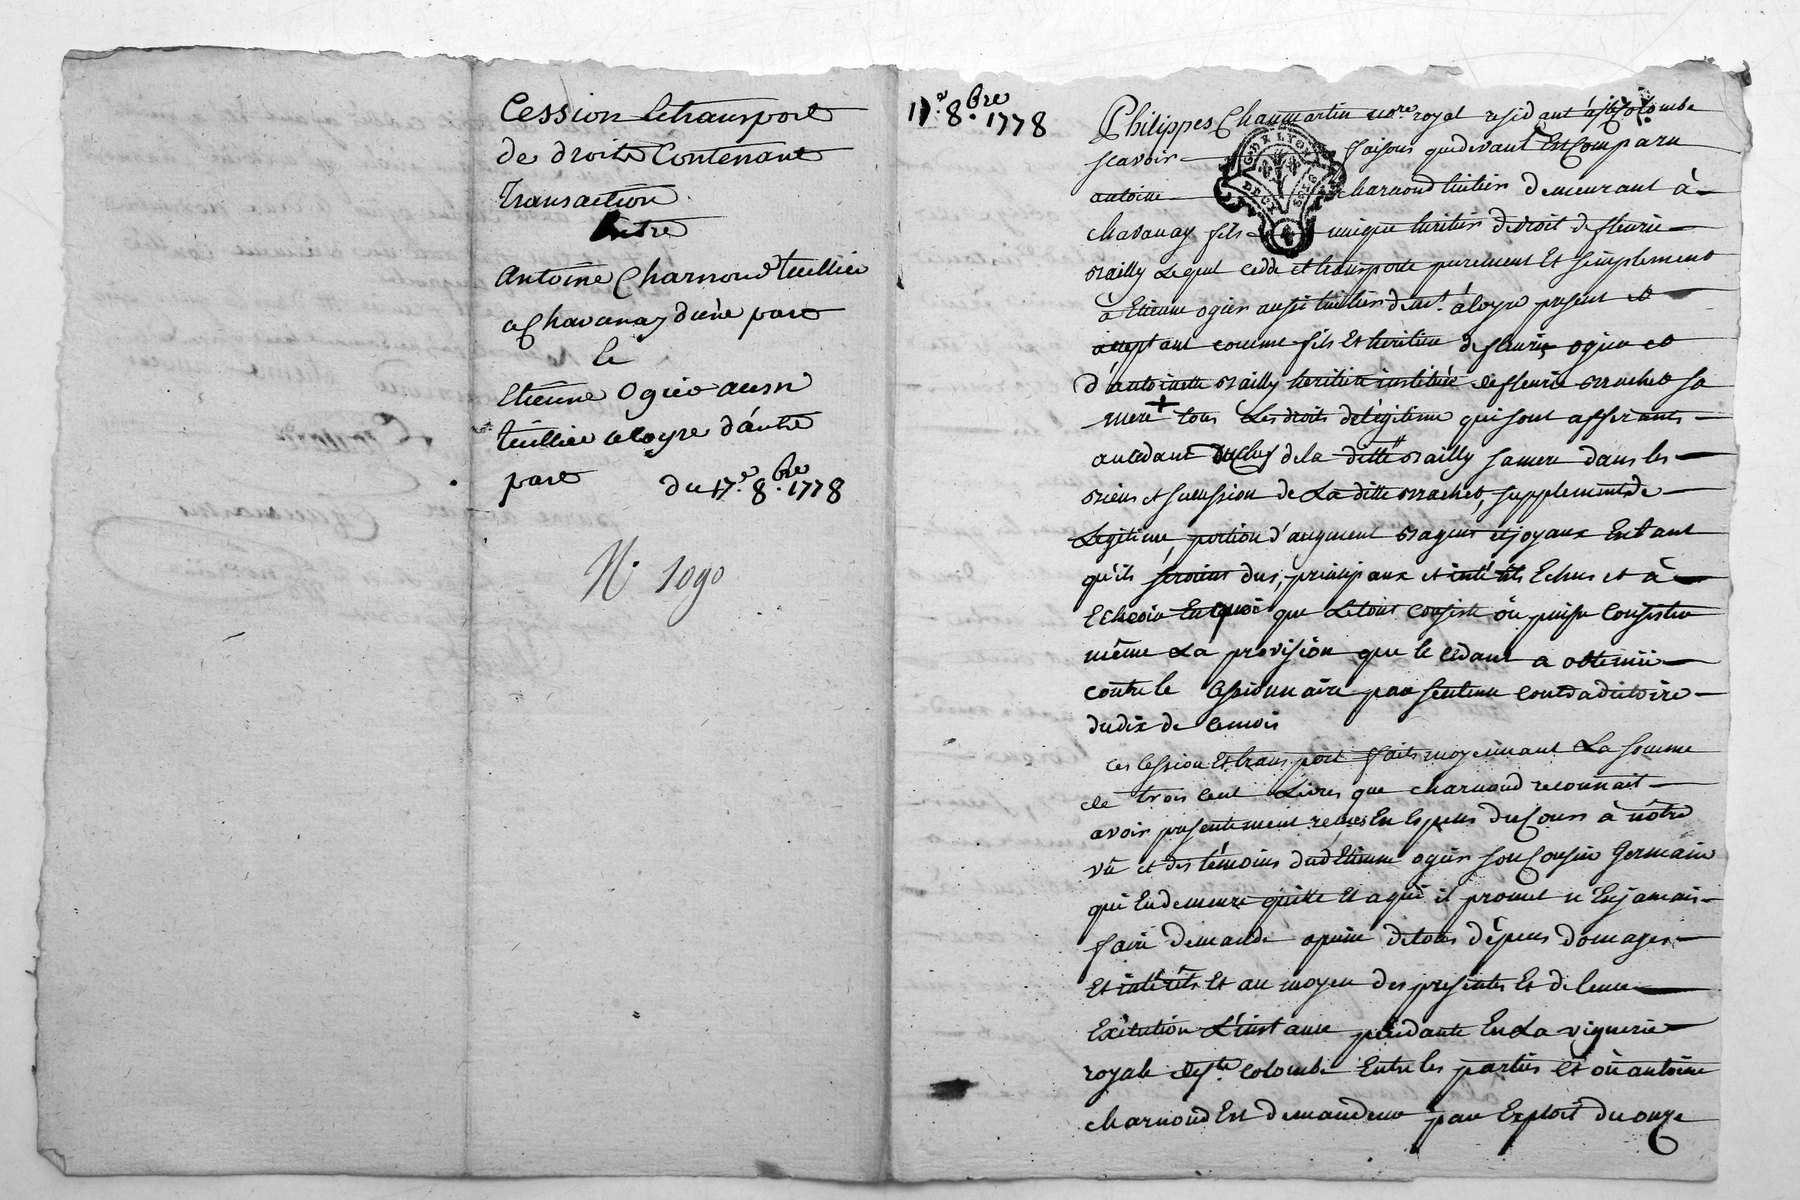 Cession & transport
de droits Contenant
Transaction
Entre
Antoine Charnoud tuillier
a Chavanay d'une part
&
Etienne Ogier aussi
tuillier a loyre d'autre
part du 17.e 8.bre 1778
N.o 1090
17.e 8.bre 1778
Philippes Chaumartin no.re royal residant a s.te Colombe
scavoir faisons que devant Est Comparu
antoine charnoud tuilier demeurant à
chavanay fils & unique heritier de droit de fleurie
Bailly Lequel cedde et transporte purement Et simplement
à Etienne ogier aussi tuilier dem.t à loyre present et
acceptant comme fils Et heritier de fleurie ogier et
d'antoinette Bailly heritiere instituée de fleurie Brachet sa
mere + tous Les droits de légitime qui sont afferants
au cedant du chef de la ditte Bailly sa mere dans les
Biens et succession de La ditte Brachet, supplement de
Legitime, portion d'augment Bagues et joyaux En tant
qu'ils seroient dus, principaux et intérêts Echus et à
Echeoir En quoi que Le tout consiste ou puisse Consister
même La provision que le cedant a obtenüe
contre le Cessionnaire par sentence contradictoire
du dix de ce mois
ces Cession Et transport faits moyennant La somme
de trois cent Livres que charnoud reconnait
avoir presentement reçues En especes du Cours à nôtre
vü et des témoins dud Etienne ogier son Cousin Germain
qui En demeure quitte Et a qui il promet n'En jamais
faire demande a peine de tous dépens domages
Et intérêts Et au moyen des presentes Et de leur
Exécution L'instance pendante En La viguerie
royale de s.te colombe Entre les parties Et où antoine
charnoud Est demandeur par Exploit du onze